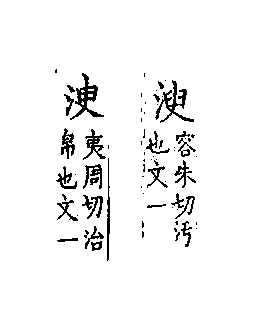 容朱切汚
也文一
夷周切治
帛也文一